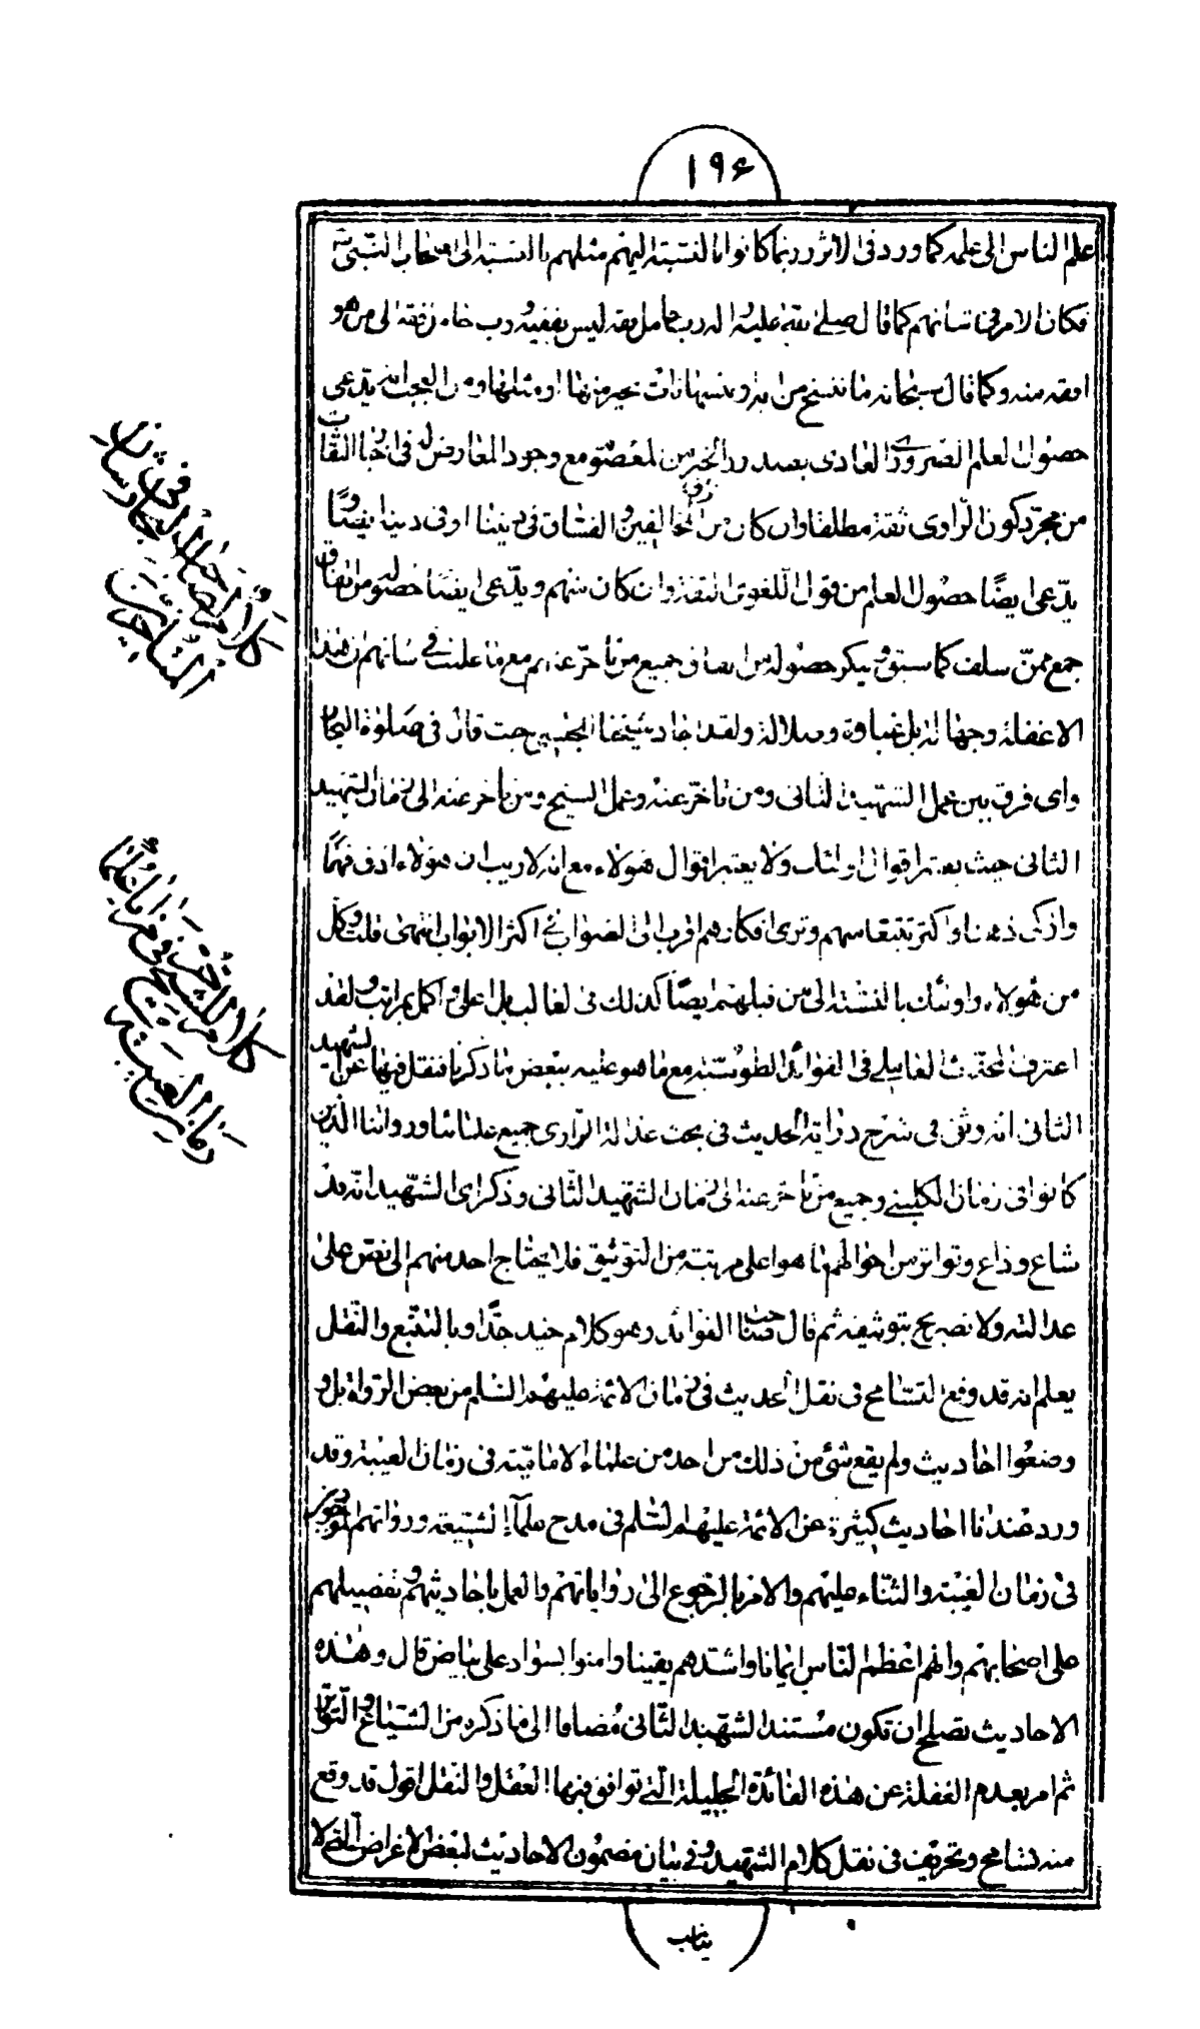 ١٩۶
علم الناس الى علمه كما ورد فى الاثر وربما كانوا بالنسبة اليهم مثلهم بالنسبة الى اصحاب النبى
فكان الامر فى شانهم كما قال صلى الله عليه واله رب حامل فقه ليس بفقيه ورب حامل فقه الى من هو
افقه منه وكما قال سبحانه ما ننسخ من اية او ننسها نات بخير منها او مثلها ومن العجب انه يدعى
حصول العلم الضرورى العادى بصدور الخبر من المعصوم مع وجود المعارض له فى اخبار الثقات
من مجرد كون الراوى ثقة مطلقا وان كان من المخالفين والفساق فى ديننا او فى دينه ايضا و
يدعى ايضا حصول العلم من قول اللغوى الثقة وان كان منهم ويدعى ايضا حصوله من اتفاق
جمع ممن سلف كما سبق وينكر حصوله من اتفاق جميع من تاخر عنهم مع ما علمت فى شانهم ان هذا
الا غفلة وجهالة بل غباوة وضلالة ولقد اجاد شيخنا حيث قال فى صلوة البحار
واى فرق بين عمل الشهيد الثانى ومن تاخر عنه وعمل الشيخ ومن تاخر عنه الى زمان الشهيد
الثانى حيث يعتبر اقوال اولئك ولا يعتبر اقوال هؤلاء مع انه لا ريب ان هؤلاء ادق فهما
واذكى ذهنا واكثر تتبعا منهم وترى افكارهم اقرب الى الصواب فى اكثر الابواب انتهى قلت وكل
من هؤلاء واولئك بالنسبة الى من قبلهم ايضا كذلك فى الغالب بل اعلى واكمل بمراتب ولقد
اعترف المحدث العاملى فى الفوائد الطوسية مع ما هو عليه ببعض ما ذكرنا فنقل فيها عن الشهيد
الثانى انه وثق فى شرح دراية الحديث فى بحث عدالة الراوى جميع علمائنا ورواتنا الذين
كانوا فى زمان الكلينى وجميع من تاخر عنه الى زمان الشهيد الثانى وذكر اى الشهيد انه قد
شاع وذاع وتواتر من احوالهم ما هو اعلى مرتبة من التوثيق فلا يحتاج احد منهم الى نص على
عدالته ولا تصريح بتوثيقه ثم قال صاحب الفوائد وهو كلام جيد جدا وبالتتبع والنقل
يعلم انه قد وقع التسامح فى نقل الحديث فى زمان الائمة عليهم السلم من بعض الرواة بل و
وضعوا احاديث ولم يقع شئ من ذلك من احد من علماء الامامية فى زمان الغيبة وقد
ورد عندنا احاديث كثيرة عن الائمة عليهم السلم فى مدح علماء الشيعة ورواتهم الموجودين
فى زمان الغيبة والثناء عليهم والامر بالرجوع الى رواياتهم والعمل باحاديثهم وتفضيلهم
على اصحابهم وانهم اعظم الناس ايمانا واشدهم يقينا وامنوا بسواد على بياض قال وهذه
الاحاديث تصلح ان تكون مستند الشهيد الثانى مضافا الى ما ذكره من الشياع والتواتر
ثم امر بعدم الغفلة عن هذه الفائدة الجليلة التى توافق فيها العقل والنقل اقول قد وقع
منه تسامح وتحريف فى نقل كلام الشهيد وفى بيان مضمون الاحاديث لبعض الاغراض التى لا
يناسب
كلام صاحب البحار فى شان
المتاخرين
كلام الشيخ الحر فى مدح علماء
زمان الغيبة